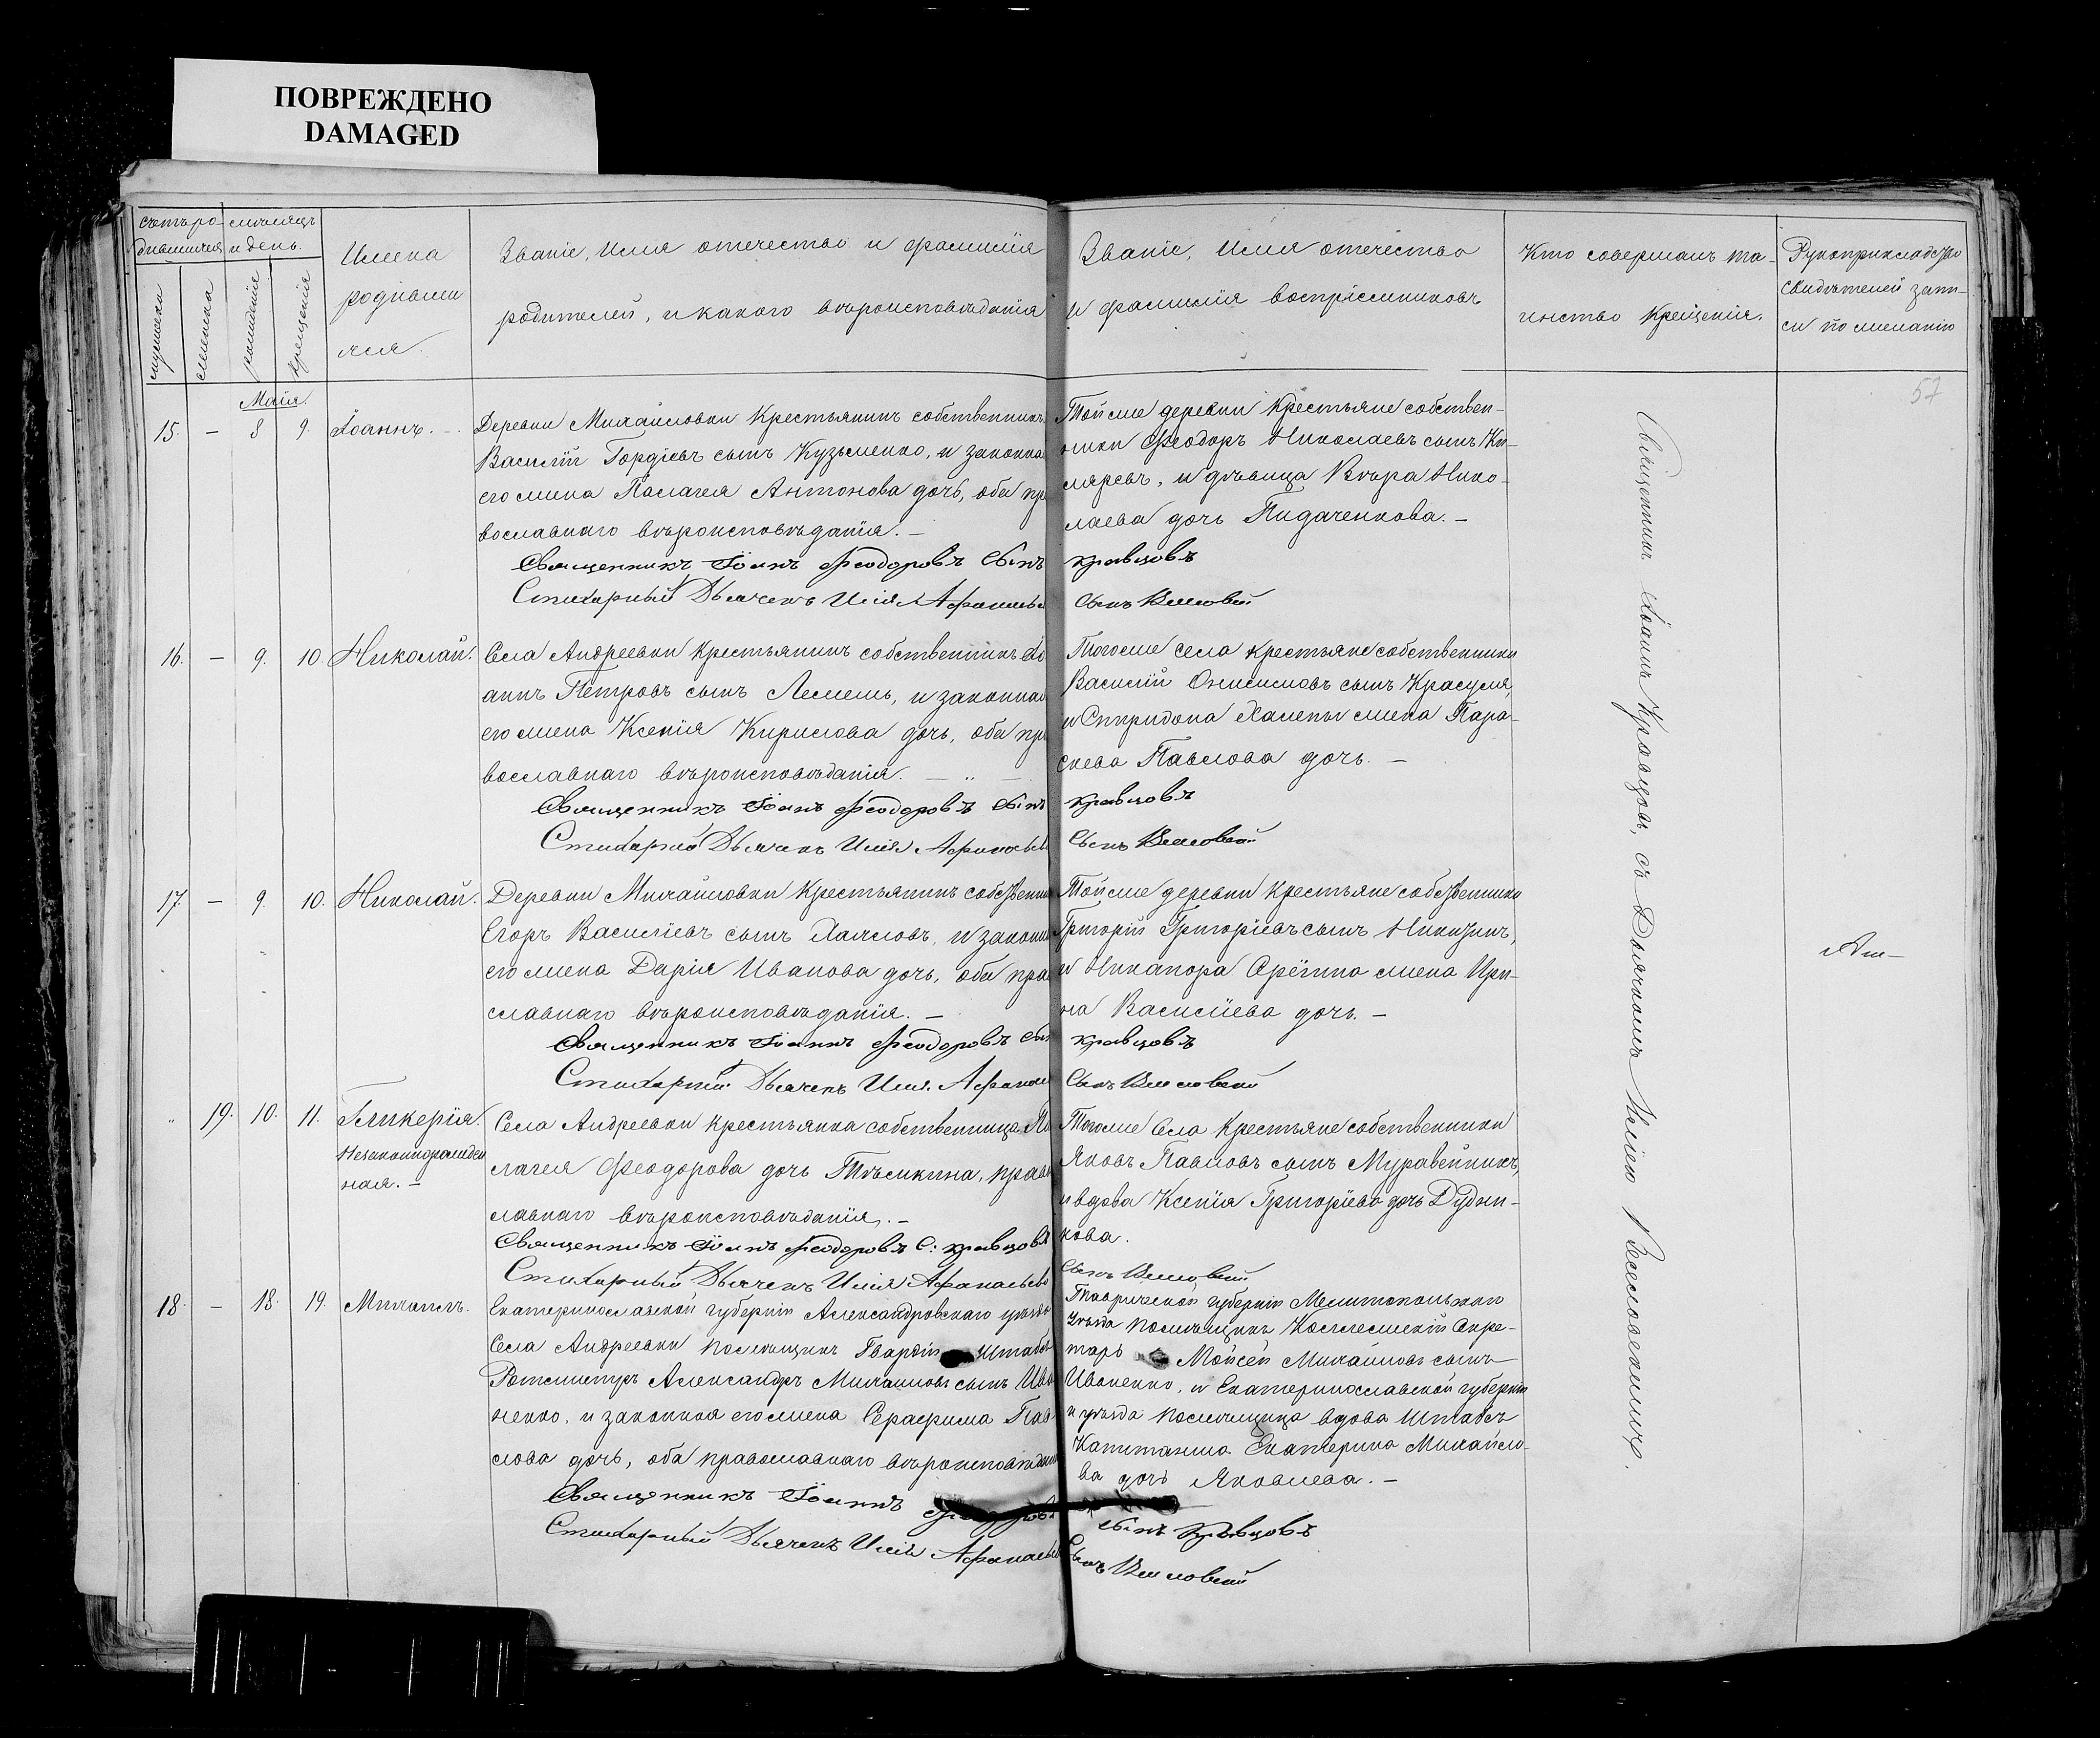 ПОВРЕЖДЕНО
DAMAGED
Счетъ ро-
дившихся
месяцъ
и день.
мужска
женска
рожденія
крещенія
Имена
родивши
хся.
Званіе, имя отечество и фамилія
родителей, и какого вѣроисповѣданія
Званіе, имя отечество
и фамилія воспріемниковъ
Кто совершалъ та-
инство крещенія.
Рукоприкладство
свидѣтелей запи-
си по желанію
57
Маія
15. — 8 9. Іоаннъ. —
Деревни Михайловки крестьянинъ собственникъ
Василій Гордіевъ сынъ Кузьменко, и законна
его жена Палагея Антонова дочь, оба пр
вославнаго вѣроисповѣданія. —
Священникъ Іоаннъ Феодоровъ сынъ
Стихарный Дьячекъ Илія Афанасьев
Тойже деревни крестьяне собствен-
ники Феодоръ Николаевъ сынъ
и дѣвица Вѣра Нико-
лаева дочь Пидаченкова. —
Кравцовъ
Сынъ
16. — 9. 10. Николай.
Села Андреевки крестьянинъ собственникъ Іо
аннъ Петровъ сынъ Лемешъ, и законная
его жена Ксенія Кирилова дочь, оба пр
вославнаго вѣроисповѣданія. — „ —
Священникъ Іоаннъ Феодоровъ сынъ
Стихарный Дьячекъ Илія Афанасьев
Тогоже села крестьяне собственники
Василій Онисимовъ сынъ Красуля,
и Спиридона жена Пара-
скева Павлова дочь. —
Кравцовъ
Сынъ
17. — 9. 10. Николай.
Деревни Михайловки крестьянинъ собственни
Егоръ Василіевъ сынъ и законна
его жена Дарія Иванова дочь, оба прав
славнаго вѣроисповѣданія. —
Священникъ Іоаннъ Феодоровъ сын
Стихарный Дьячекъ Илія Афанась
Тойже деревни крестьяне собственники
Григорій Григоріевъ сынъ
и Никанора жена Ири-
на Василіева дочь. —
Кравцовъ
Сынъ
„ 19. 10. 11. Гликерія.
Незаконнорожден
ная. —
Села Андреевки крестьянка собственница Па
лагея Феодорова дочь правос
лавнаго вѣроисповѣданія. —
Священникъ Іоаннъ Феодоровъ С: Кравцовъ
Стихарный Дьячекъ Илія Афанасьевъ
Тогоже села крестьяне собственники
Яковъ Павловъ сынъ Муравейникъ,
и вдова Ксенія Григоріева дочь Дудни-
кова.
Сынъ
18. — 18. 19. Михаилъ.
Екатеринославской губерніи Александровскаго уѣзда
Села Андреевки помѣщикъ Гвардіи Штабсъ
Ротмистръ Александръ Михайловъ сынъ Ива
ненко, и законная его жена Серафима Пав
лова дочь, оба православнаго вѣроисповѣдані
Священникъ Іоаннъ Феодоровъ
Стихарный Дьячекъ Илія Афанасьев
Таврической губерніи Мелитопольскаго
уѣзда помѣщикъ Коллежскій Секре-
тарь Моисей Михайловъ сынъ
Иваненко, и Екатеринославской губерніи
и уѣзда помѣщица вдова Штабсъ
Капитанша Екатерина Михайло-
ва дочь Яковлева. —
сынъ Кравцовъ
Сынъ
Священникъ Іоаннъ Кравцовъ, съ Дьячкомъ Иліею